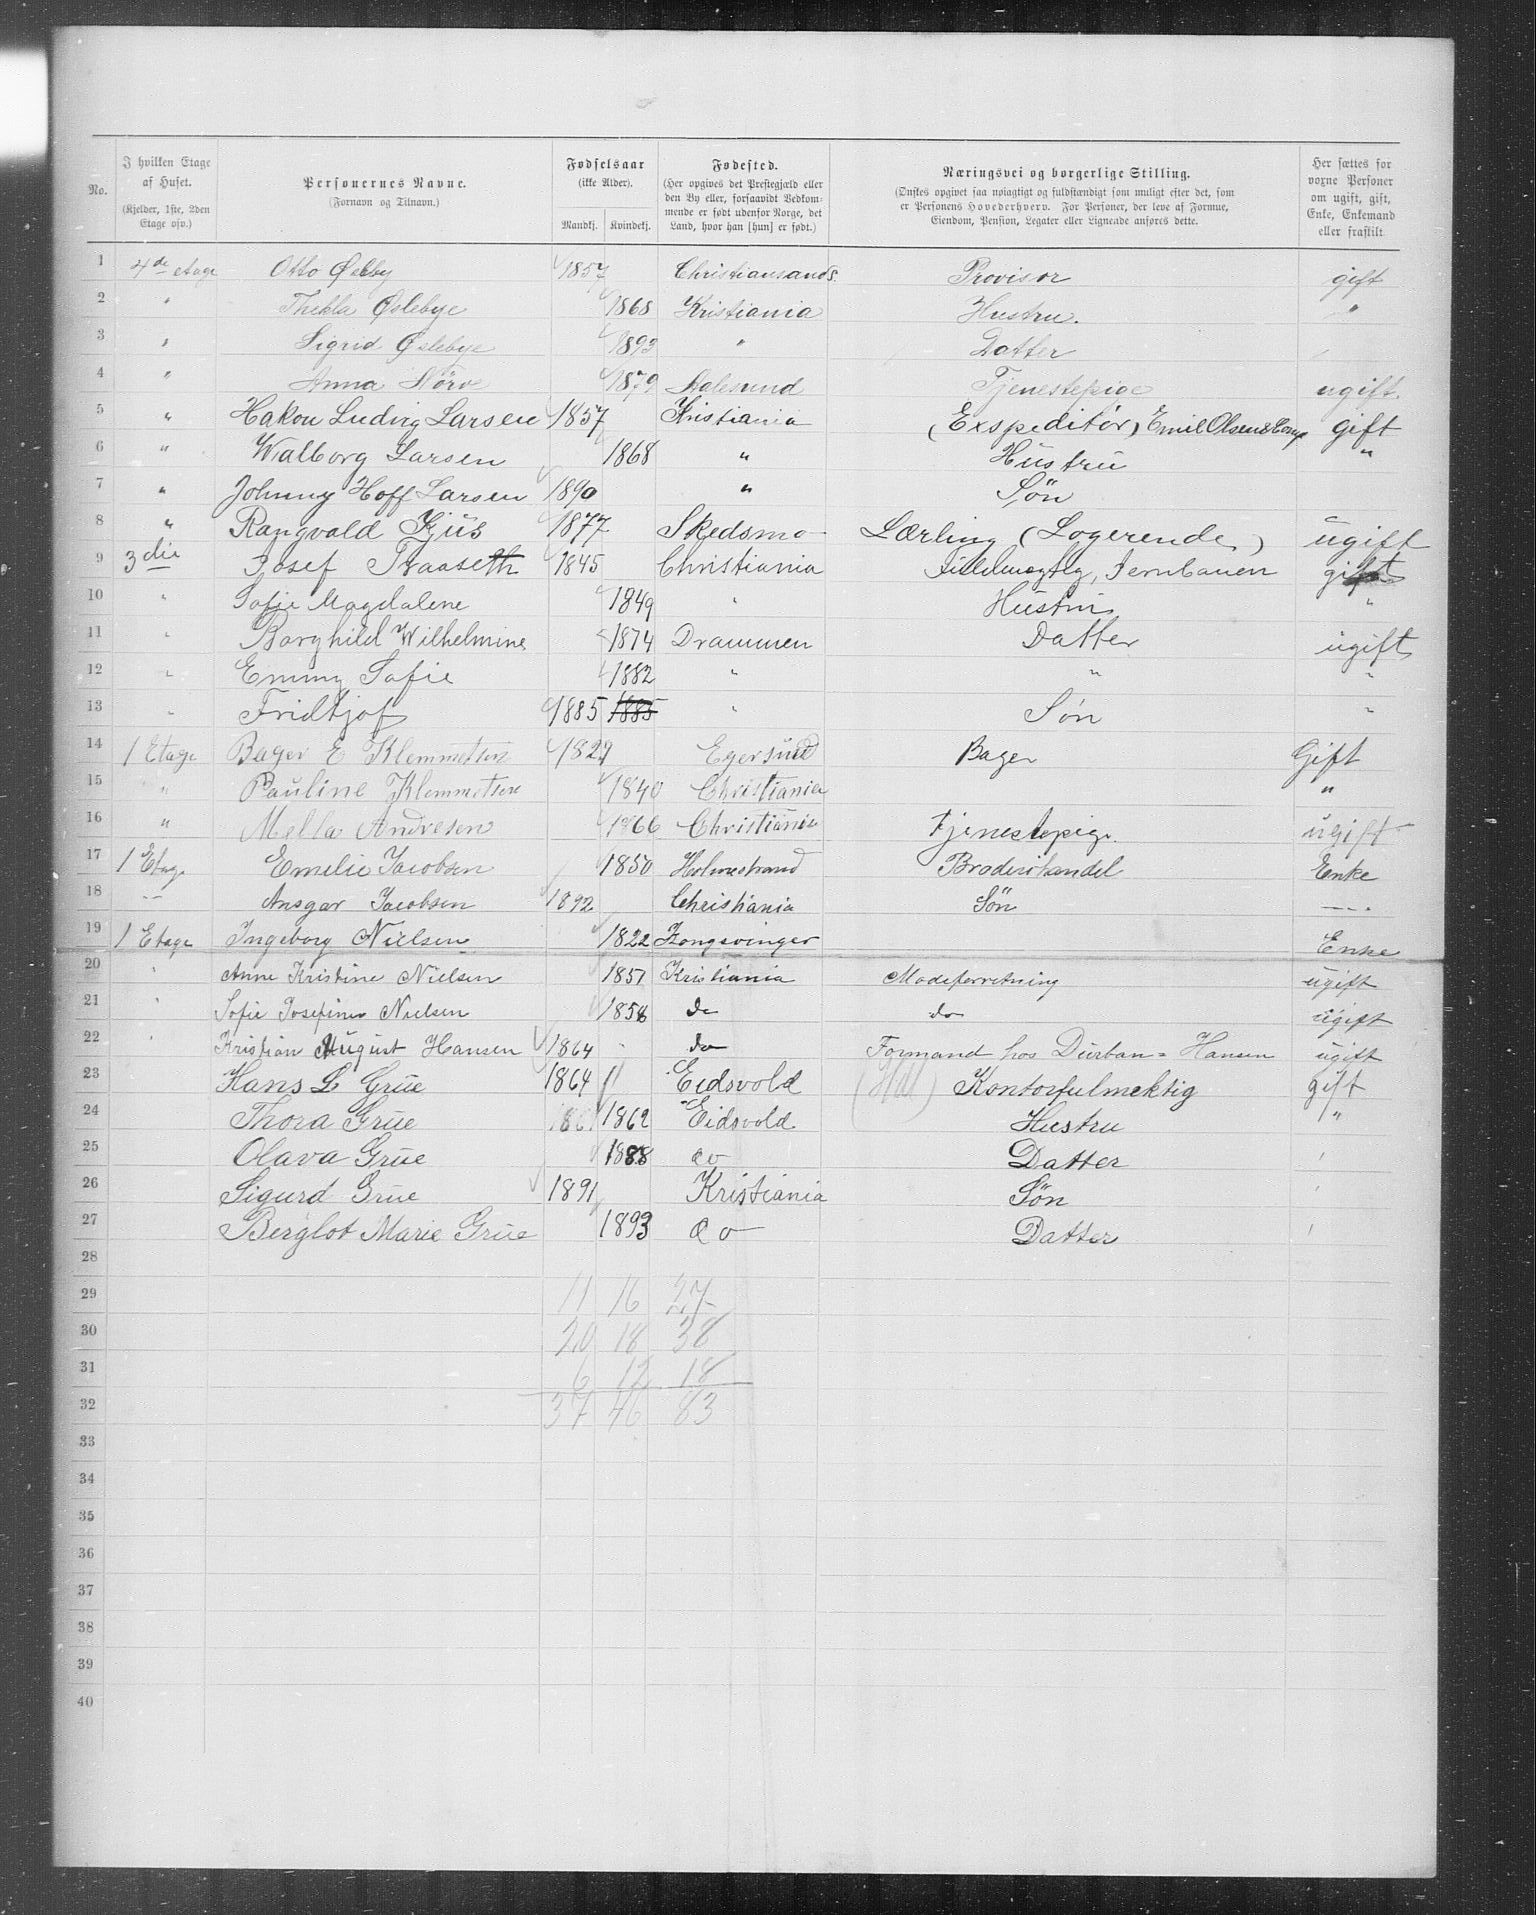 No. | I hvilken Etage af Huset. (Kjelder, 1ste, 2den Etage osv.) | Personernes Navne. (Fornavn og Tilnavn.) | Fødselsaar (ikke Alder). Mandkj. Kvindekj. | Fødested. (Her opgives det Prestegjæld eller den By eller, forsaavidt Vedkommende er født udenfor Norge, det Land, hvor han [hun] er født.) | Næringsvei og borgerlige Stilling. (Ønskes opgivet saa nøiagtigt og fuldstændigt som muligt efter det, som er Personens Hovederhverv. For Personer, der leve af Formue, Eiendom, Pension, Legater eller Lignende anføres dette. | Her sættes for voxne Personer om ugift, gift, Enke, Enkemand eller fraskilt
1 4de etage Otto Øslby 1857 Christiansands. Provisor gift
2 " Thekla Øslebye 1868 Kristiania Hustru. "
3 " Sigrid Øslebye 1893 " Datter
4 " Anna Nörve 1879 Aalesund Tjenestepige ugift.
5 " Hakon Ludvig Larsen 1857 Kristiania (Exspeditör) Emil Olsen & Comp gift
6 " Walborg Larsen 1868 " Hustru "
7 " Johnny Hoff Larsen 1890 " Søn
8 " Rangvald Kjus 1877 Skedsmo Lærling (Logerende) ugift
9 3die Josef Traaseth 1845 Christiania Fuldmægtig, Jernbanen gift
10 " Sofie Magdalene 1849 " Hustru "
11 " Borghild Wilhelmine 1874 Drammen Datter ugift
12 " Emmy Sofie 1882 " " "
13 " Fridtjof 1885 1885 " Søn "
14 1 Etage Bager E Klemmetsen 1829 Egersund Bager Gift
15 " Pauline Klemmetsen 1840 Christiania "
16 " Mella Andresen 1866 Christiania tjenestepige. ugift
17 1 Etage Emelie Jacobsen 1850 Holmestrand Broderihandel Enke
18 — Ansgar Jacobsen 1892 Christiania Søn
19 1 Etage Ingeborg Nielsen 1822 Kongsvinger Enke
20 " Anne Kristine Nielsen 1851 Kristiania Modeforretning ugift
21 " Sofie Josefine Nielsen 1858 do do ugift
22 " Kristian August Hansen 1864 do Formand hos Durban = Hansen ugift
23 Hans L Grue 1864 Eidsvold Kontorfulmektig gift
24 Thora Grue 1862 Eidsvold Hustru "
25 Olava Grue 1888 do Datter
26 Sigurd Grue 1891 Kristiania Søn
27 Berglot Marie Grue 1893 do Datter
28
29 11 16 27
30 20 18 38
31 6 12 18
32 37 46 83
33
34
35
36
37
38
39
40